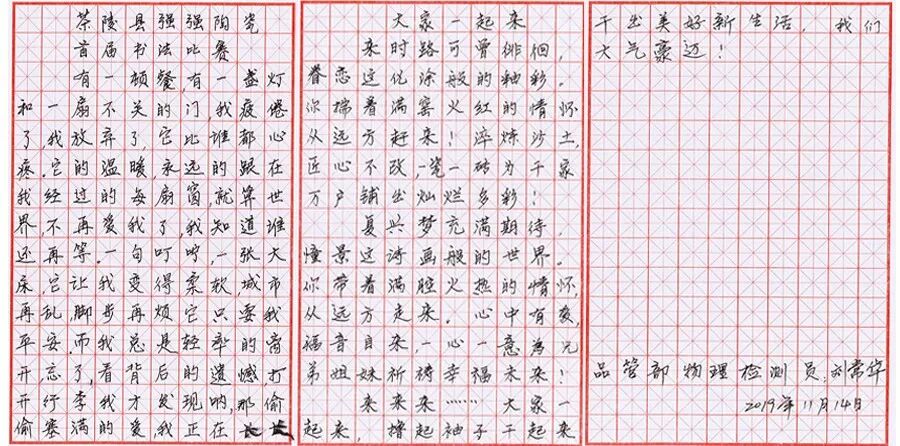 茶陵县强强陶瓷
首届书法比赛
有一顿餐,有一盏灯
和一扇不关的门,我疲倦
了,我放弃了,它比谁都心
疼.它的温暖永远的跟在
我经过的每扇窗,就算世
界不再爱我了,我知道谁
还再等.一句叮咛,一张大
床,它让我变得柔软,城市
再乱脚步再烦它只要我
平安.而我总是轻率的离
开,忘了,看背后的遗憾打
开行李我才发现呐,那偷
偷塞满的爱,我正在
大家一起来
来时路可曾徘徊,
眷恋这优涂般的釉彩。
你揣着满窑火红的情怀
从远方赶来!淬炼沙土,
匠心不改,一瓷一砖为千家
万户铺出灿烂多彩!
复兴梦充满期待,
憧景这诗画般的世界。
你带着满腔火热的情怀,
从远方走来。心中有爱,
福音自来,一心一意为兄
弟姐妹祈祷幸福未来!
来来来……大家一
起来,撸起袖子干起来
干出美好新生活,我们
大气豪迈!
品管部物理检测员:刘常华
2019年11月14日